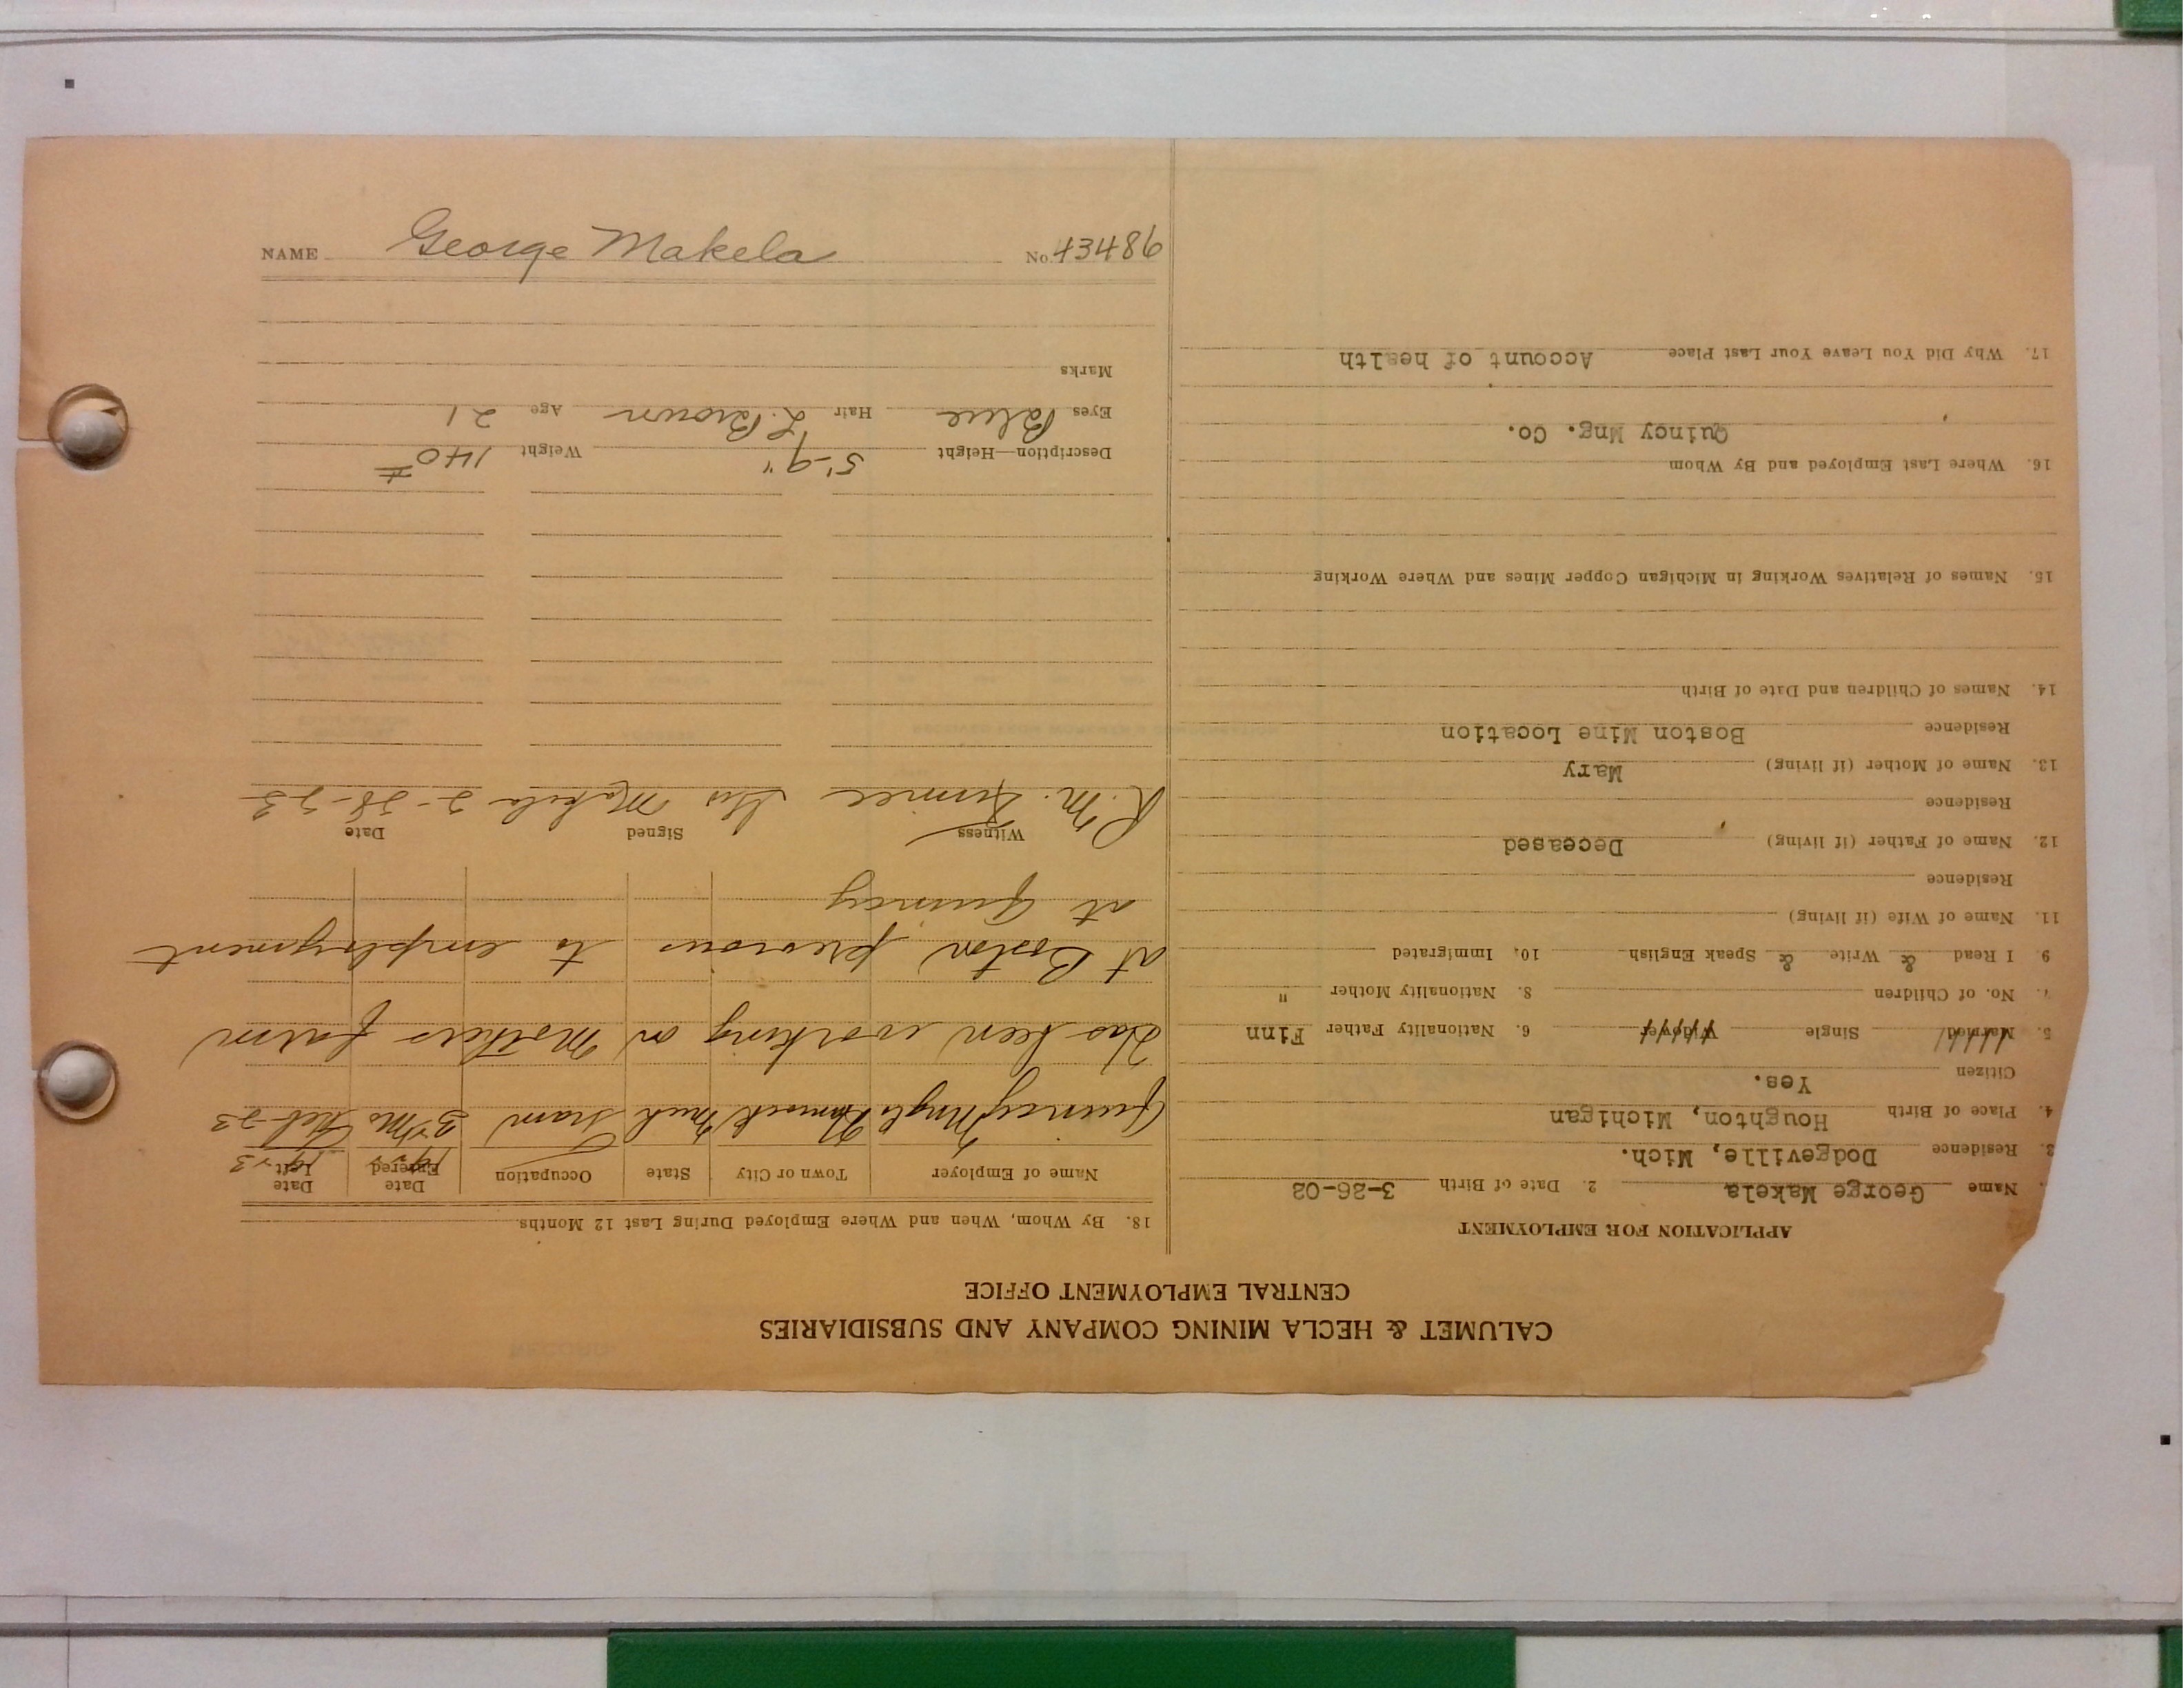 CALUMET & HECLA MINING COMPANY AND SUBSIDIARIES
CENTRAL EMPLOYMENT OFFICE
APPLICATION FOR EMPLOYMENT
Name George Makela 2. Date of Birth 3-26-02
3. Residence Dodgeville, Mich.
4. Place of Birth Houghton, Michigan
Citizen Yes.
5. Married Single Widower 6. Nationality Father Finn
7. No. of Children 8. Nationality Mother "
9. I Read & Write & Speak English 10. Immigrated
11. Name of Wife (if living)
Residence
12. Name of Father (if living) Deceased
Residence
13. Name of Mother (if living) Mary
Residence Boston Mine Location
14. Names of Children and Date of Birth
15. Names of Relatives Working in Michigan Copper Mines and Where Working
16. Where Last Employed and By Whom
Quincy Mng. Co.
17. Why Did You Leave Your Last Place Account of health
18. By Whom, When and Where Employed During Last 12 Months
Name of Employer Town or City State Occupation Date Entered Date Left
1922 1923
Quincy Mng Co Hancock Mich Tram 3 Mo Feb-23
Has been working on Mothers farm
at Boston previous to employment
at Quincy
Witness Signed Date
R. M. Geo Makela 2-28-23
Description—Height 5'-9" Weight 140#
Eyes Blue Hair L. Brown Age 21
Marks
NAME George Makela No. 43486